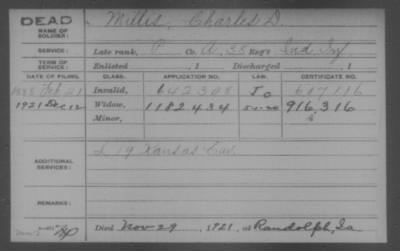 DEAD
NAME OF SOLDIER: Millis, Charles D.
SERVICE: Late rank, P Co. A, 38 Reg't Ind Inf
TERM OF SERVICE: Enlisted , 1 Discharged , 1
DATE OF FILING. CLASS. APPLICATION NO. LAW. CERTIFICATE NO.
1888 Feb 21 Invalid, 642308 Jo 667116
1921 Dec 12 Widow, 1182434 916,316
Minor,
ADDITIONAL SERVICES: L 19 Kansas Cav.
REMARKS:
Died Nov 29, 1921, at Randolph, Ia